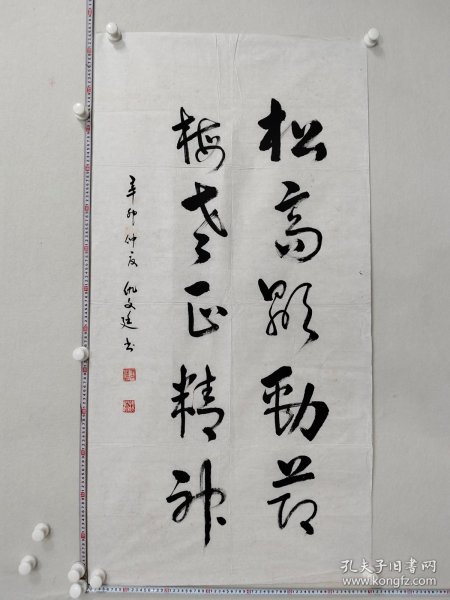 松高显劲节
梅老正精神
辛卯仲夏 仇文廷书
孔夫子旧书网
www.kongfz.com